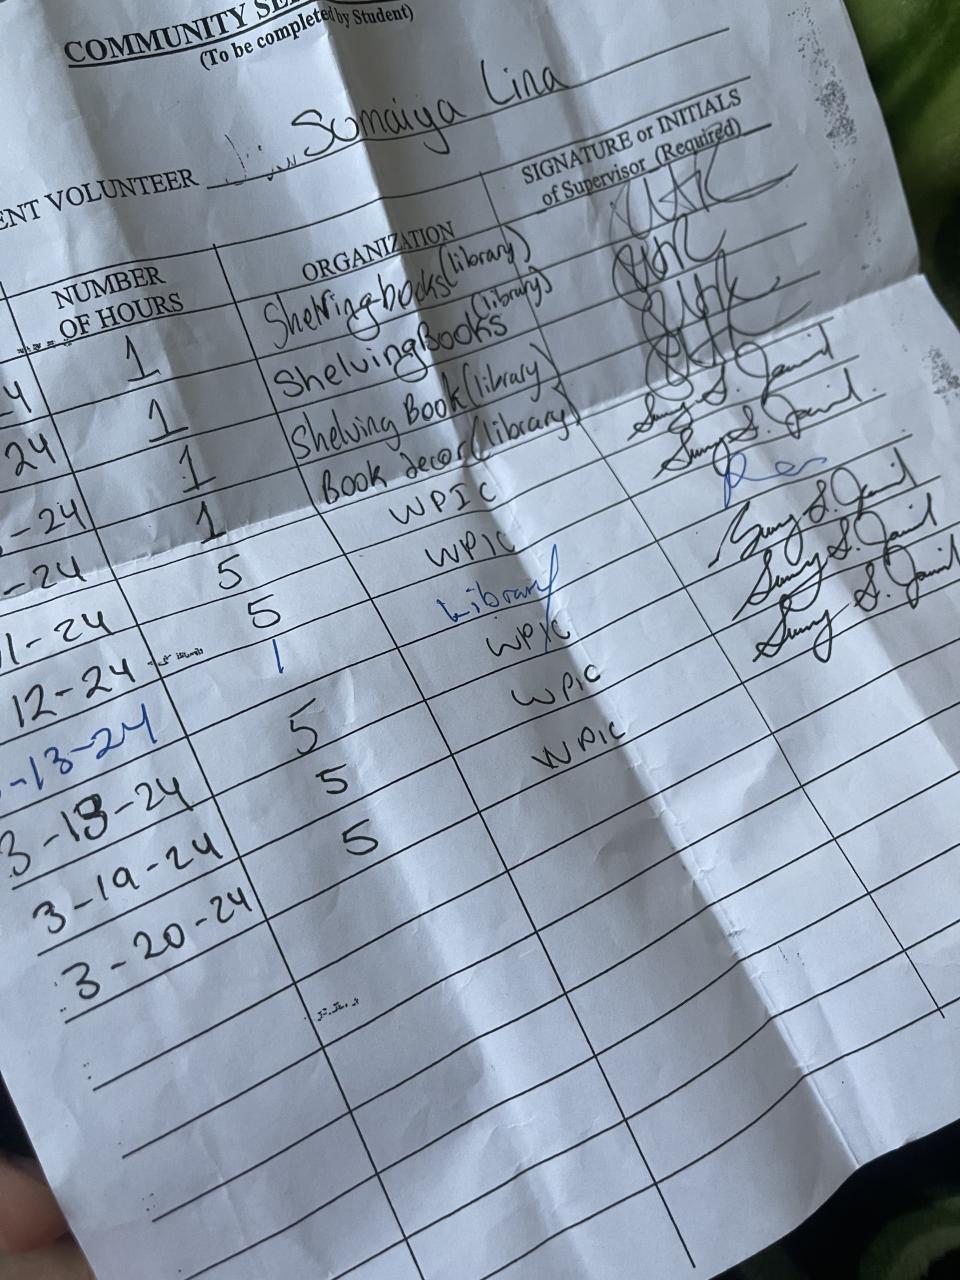 COMMUNITY SE
(To be completed by Student)
ENT VOLUNTEER Sumaiya Lina
NUMBER OF HOURS ORGANIZATION SIGNATURE or INITIALS of Supervisor (Required)
4 1 Shelving books (library)
24 1 Shelving Books (library)
-24 1 Shelving Book (library)
-24 1 Book decor (library)
11-24 5 WPIC Sunny S. Jamil
12-24 5 WPIC Sunny S. Jamil
-13-24 1 Library
3-13-24 5 WPIC Sunny S. Jamil
3-19-24 5 WPIC Sunny S. Jamil
3-20-24 5 WPIC Sunny S. Jamil